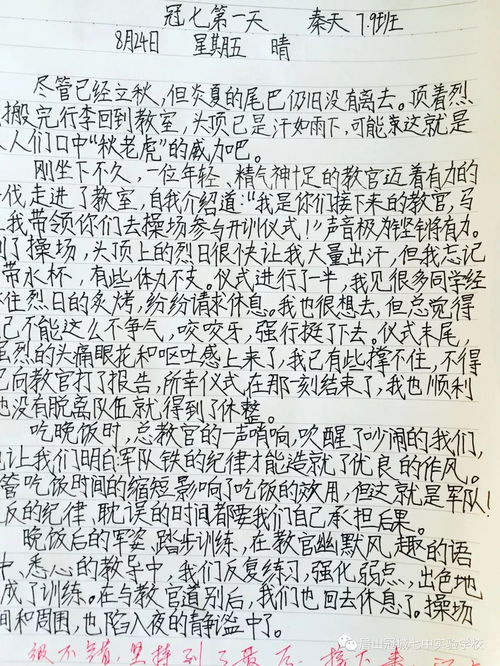 冠七第一天 秦天 7.9班
8月24日 星期五 晴
尽管已经立秋,但炎夏的尾巴仍旧没有离去。顶着烈
搬完行李回到教室,头顶已是汗如雨下,可能这就是
人们口中“秋老虎”的威力吧。
刚坐下不久,一位年轻、精气神十足的教官迈着有力的
伐走进了教室,自我介绍道:“我是你们接下来的教官,马
我带领你们去操场参与开训仪式!”声音极为铿锵有力。
了操场,头顶上的烈日很快让我大量出汗,但我忘记
带水杯,有些体力不支。仪式进行了一半,我见很多同学经
住烈日的炙烤,纷纷请求休息。我也很想去,但总觉得
己不能这么不争气,咬咬牙,强行挺了下去。仪式末尾,
烈的头痛眼花和呕吐感上来了,我已有些撑不住,不得
已向教官打了报告,所幸仪式在那一刻结束了,我也顺利
地没有脱离队伍就得到了休整。
吃晚饭时,总教官的一声哨响,吹醒了吵闹的我们,
也让我们明白军队铁的纪律才能造就了优良的作风。
管吃饭时间的缩短影响了吃饭的效用,但这就是军队!
反的纪律、耽误的时间都要我们自己承担后果。
晚饭后的军姿、踏步训练,在教官幽默风趣的语
悉心的教导中,我们反复练习,强化弱点,出色地
成了训练。在与教官道别后,我们也回去休息了。操场
间和周围,也陷入夜的静谧中了。
很不错,坚持到了最后
眉山冠城七中实验学校